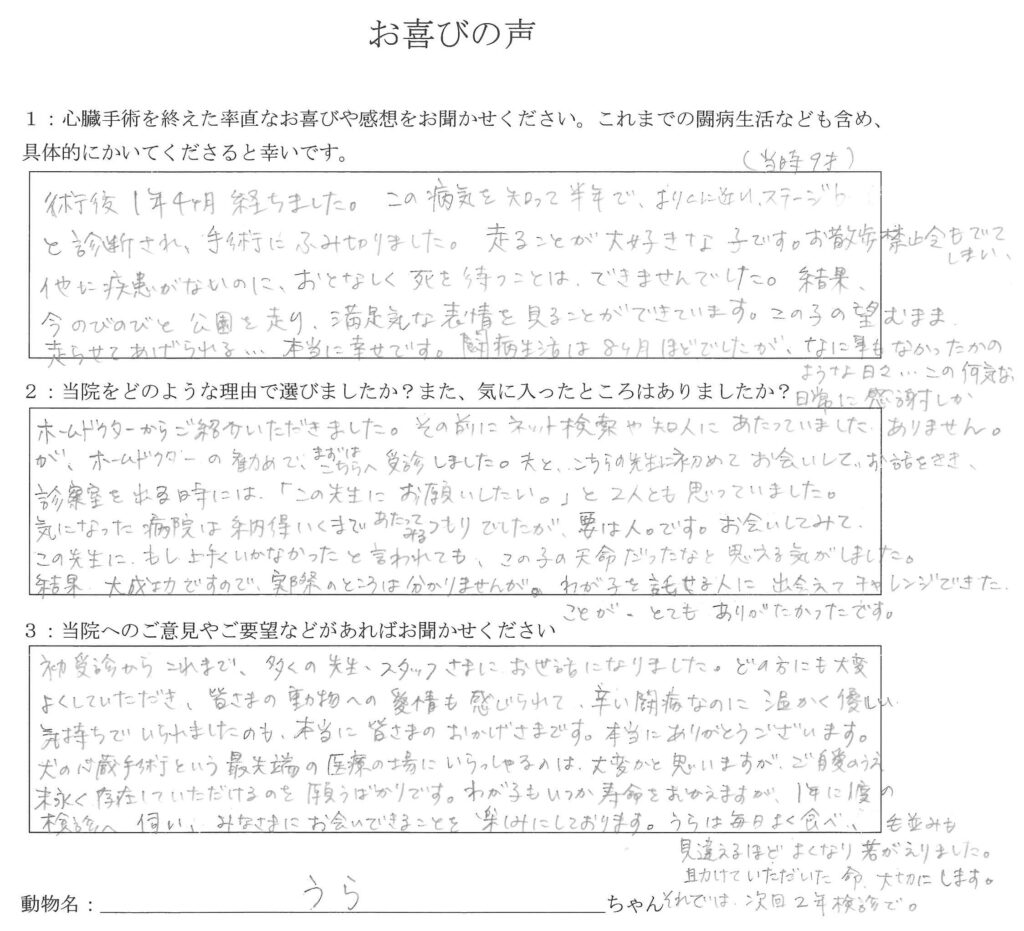 お喜びの声
1：心臓手術を終えた率直なお喜びや感想をお聞かせください。これまでの闘病生活なども含め、
具体的にかいてくださると幸いです。
(当時9才)
術後1年4ヶ月経ちました。この病気を知って半年で、よりCに近いステージb
と診断され、手術にふみ切りました。走ることが大好きな子です。お散歩禁止令もでて
しまい、
他に疾患がないのに、おとなしく死を待つことは、できませんでした。結果、
今のびのびと公園を走り、満足気な表情を見ることができています。この子の望むまま、
走らせてあげられる…本当に幸せです。闘病生活は8ヶ月ほどでしたが、なに事もなかったかの
ような日々…この何気ない
日常に感謝しか
ありません。
2：当院をどのような理由で選びましたか？また、気に入ったところはありましたか？
ホームドクターからご紹介いただきました。その前にネット検索や知人にあたっていました
が、ホームドクターの勧めで、まずはこちらへ受診しました。夫と、こちらの先生に初めてお会いして、お話をきき、
診察室を出る時には、「この先生にお願いしたい。」と2人とも思っていました。
気になった病院は納得いくまであたってみるつもりでしたが、要は人。です。お会いしてみて、
この先生に、もし上手くいかなかったと言われても、この子の天命だったなと思える気がしました。
結果、大成功ですので、実際のところは分かりませんが。わが子を託せる人に出会えてチャレンジできた
ことが、とてもありがたかったです。
3：当院へのご意見やご要望などがあればお聞かせください
初受診からこれまで、多くの先生、スタッフさまにお世話になりました。どの方にも大変
よくしていただき、皆さまの動物への愛情も感じられて、辛い闘病なのに温かく優しい
気持ちでいられましたのも、本当に皆さまのおかげさまです。本当にありがとうございます。
犬の心臓手術という最先端の医療の場にいらっしゃるのは、大変かと思いますが、ご自愛のうえ
末永く存在していただけるのを願うばかりです。わが子もいつか寿命をむかえますが、1年に1度の
検診へ伺い、みなさまにお会いできることを楽しみにしております。うらは毎日よく食べ、毛並みも
見違えるほどよくなり若がえりました。
助けていただいた命、大切にします。
それでは、次回2年検診で。
動物名：うらちゃん